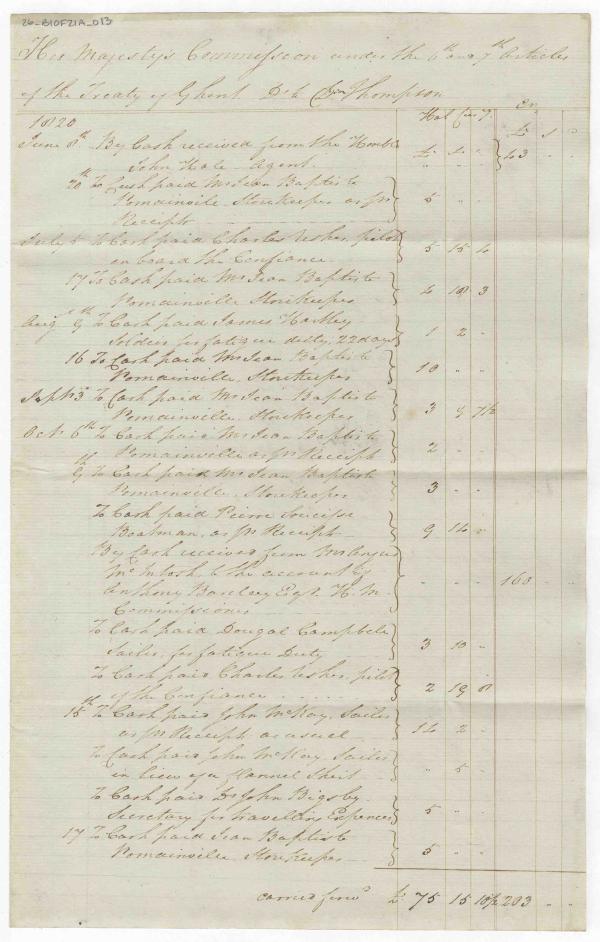 26-B10F21A_013
Her Majesty's Commission under the 6th and 7th Articles
of the Treaty of Ghent Dr to Thompson
Cr
1820 Hal Cur y.
£ s "
June 8th By Cash received from the Honble
John Hale Agent £ s " 43 " "
20th To Cash paid Mr Jean Baptiste
Pomainville Storekeeper as pr
Receipt 5 " "
July 5 To Cash paid Charles Usher, pilot
on board the Confiance 5 15 4
17 To Cash paid Mr Jean Baptiste
Pomainville Storekeeper 4 18 3
Augt 9th To Cash paid James Hartley
Soldier for fatigue duty, 22 days 1 2 "
16 To Cash paid Mr Jean Baptiste
Pomainville, Storekeeper 10 " "
Septr 3d To Cash paid Mr Jean Baptiste
Pomainville, Storekeeper 3 9 7½
Octr 6th To Cash paid Mr Jean Baptiste
Pomainville as pr Receipt 2 " "
9th To Cash paid Mr Jean Baptiste
Pomainville, Storekeeper 3 " "
To Cash paid Pierre
Boatman, as pr Receipt 9 14 "
By Cash received from Mr Angus
McIntosh, to the account of
Anthony Barclay Esqr. H. M.
Commissioner " " " 160 " "
To Cash paid Dougal Campbell
Sailor, for fatigue Duty 3 10 "
To Cash paid Charles Usher, pilot
of the Confiance 2 19 8
15th To Cash paid John McKay, Sailor
as pr Receipt as usual 14 2 "
To Cash paid John McKay, Sailor
in lieu of a flannel Shirt " 5 "
To Cash paid Dr John Bigsby
Secretary for travelling Expences 5 " "
17 To Cash paid Jean Baptiste
Pomainville Storekeeper 5 " "
carried forwd £ 75 15 10½ 203 " "